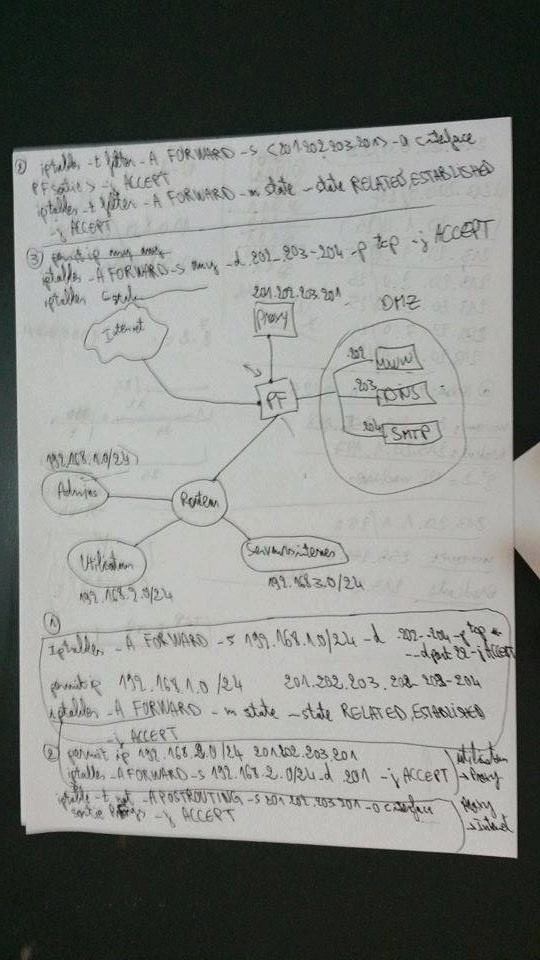 ② iptables -t filter -A FORWARD -s <201.202.203.201> -o <interface
PF sortie> -j ACCEPT
iptables -t filter -A FORWARD -m state --state RELATED,ESTABLISHED
-j ACCEPT
③ permit ip any any
iptables -A FORWARD -s any -d 202-203-204 -p tcp -j ACCEPT
iptables
201.202.203.201
Internet
Proxy
DMZ
.202 WWW
PF
.203 DNS
.204 SMTP
192.168.1.0/24
Admins
Routeur
Utilisateurs
Serveurs internes
192.168.2.0/24
192.168.3.0/24
①
Iptables -A FORWARD -s 192.168.1.0/24 -d .202-204 -p tcp
--dport 22 -j ACCEPT
permit ip 192.168.1.0/24 201.202.203. 202-203-204
iptables -A FORWARD -m state --state RELATED,ESTABLISHED
-j ACCEPT
② permit ip 192.168.2.0/24 201.202.203.201
iptables -A FORWARD -s 192.168.2.0/24 -d 201 -j ACCEPT
utilisateurs
→ Proxy
iptable -t nat -A POSTROUTING -s 201.202.203.201 -o <interface
sortie -j ACCEPT
Proxy
→ Internet